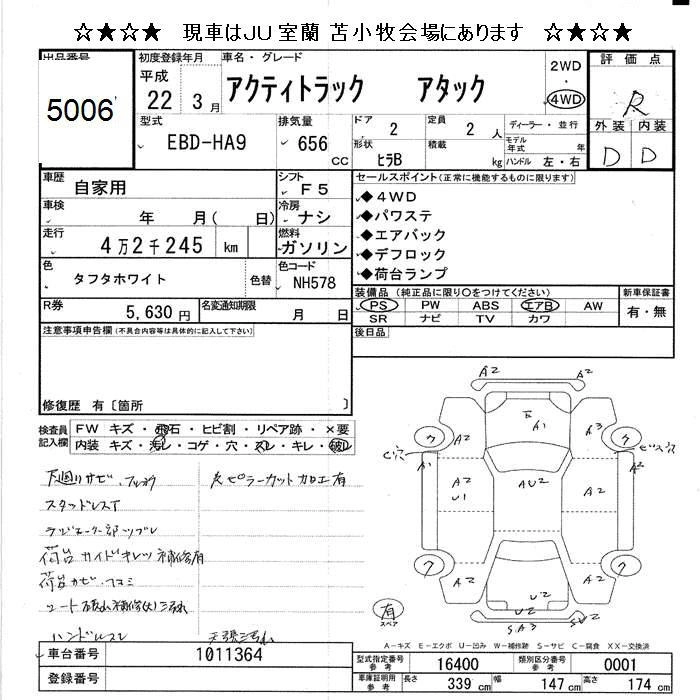 ☆★☆★ 現車はJU室蘭 苫小牧会場にあります ☆★☆★
出品番号
5006
初度登録年月
平成
22 年 3 月
車名・グレード
アクティトラック アタック
2WD
・
4WD
評価点
R
外装 内装
D D
型式
EBD-HA9
排気量
656
CC
ドア
2
定員
2 人
形状
ヒラB
積載
kg
ディーラー・並行
モデル年式 年
ハンドル 左・右
車歴
自家用
シフト
F5
車検
年 月( 日)
冷房
ナシ
走行
4万2千245 km
燃料
ガソリン
色
タフタホワイト
色替
色コード
NH578
R券
5,630 円
名変通知期限
月 日
セールスポイント(正常に機能するものに限ります)
◆4WD
◆パワステ
◆エアバック
◆デフロック
◆荷台ランプ
装備品(純正品に限り○をつけてください)
PS PW ABS エアB AW
SR ナビ TV カワ
新車保証書
有・無
後日品
注意事項申告欄(不具合内容等は具体的に記入して下さい)
修復歴 有〔箇所 〕
検査員記入欄
FW キズ・飛石・ヒビ割・リペア跡・×要
内装 キズ・汚レ・コゲ・穴・スレ・キレ・破レ
下廻リサビ
スタッドレスT
荷台ガイドキレツ補修有
ハンドルスレ
ピラーカット加工有
A2
A2
A1
A2
A3
ウ
ウ
ビス穴
A1
A2
A2
U1
AU2
A2
ウ
ウ
A2
A2
U2
SA3
有
スペア
A−キズ E−エクボ U−凹み W−補修跡 S−サビ C−腐食 XX−交換済
車台番号
1011364
登録番号
型式指定番号
参考
16400
類別区分番号
参考
0001
車庫証明用
参考
長さ 339 cm
幅 147 cm
高さ 174 cm